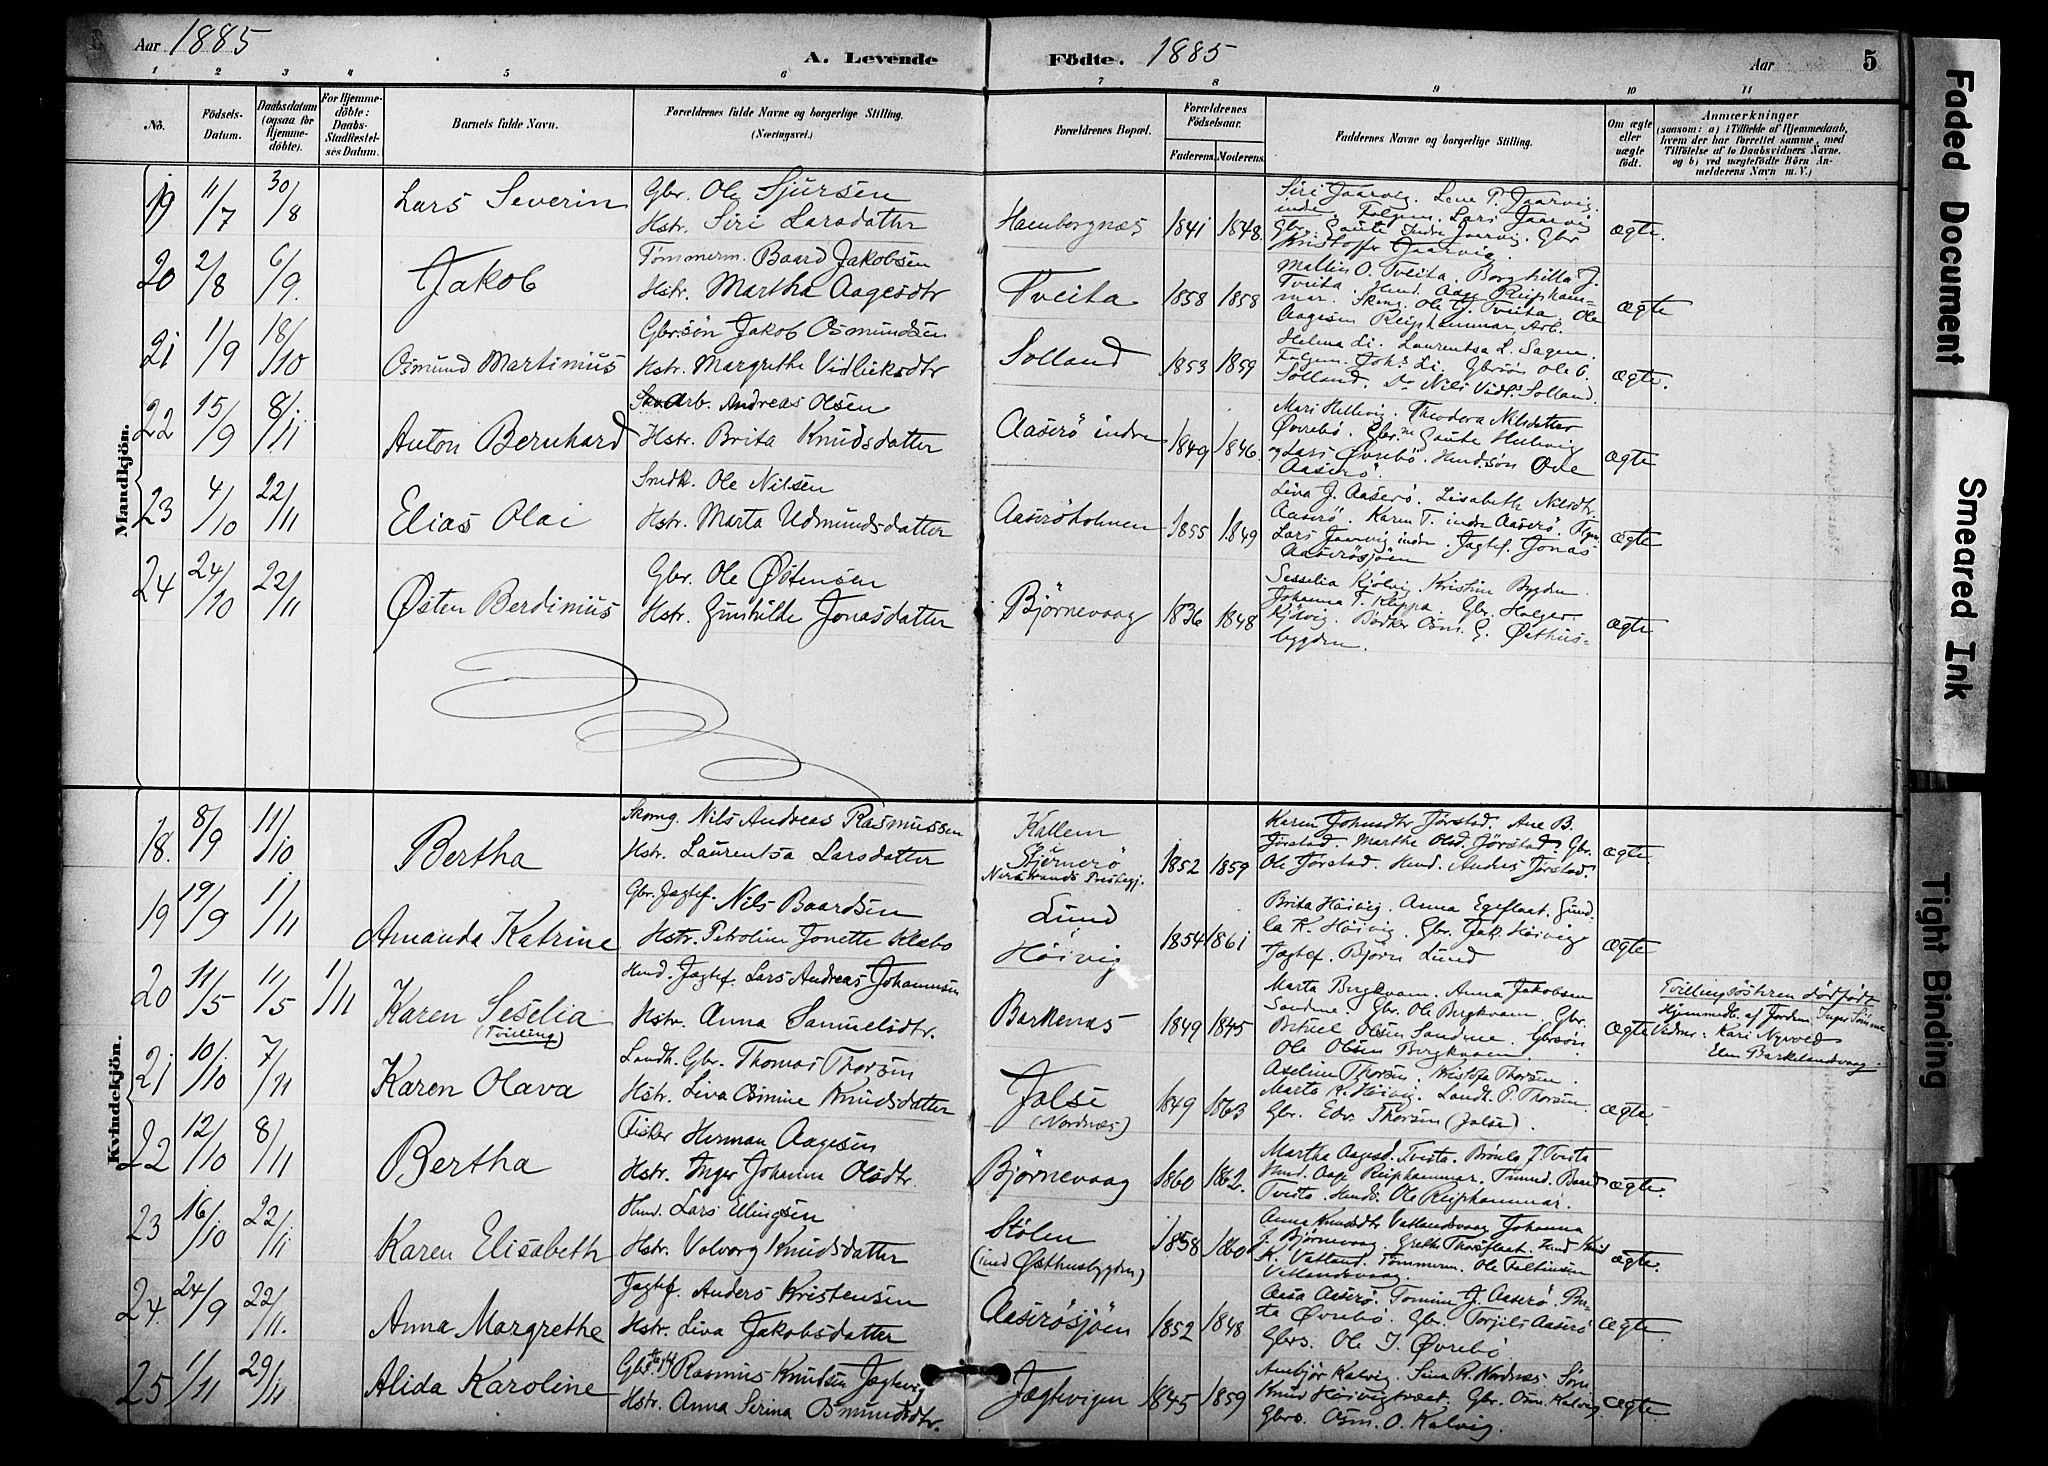 Aar 1885 A. Levende Födte. 1885 Aar 5
1 2 3 4 5 6 7 8 9 10 11
No. Födsels-Datum. Daabsdatum (ogsaa for Hjemme-döbte). For Hjemme-döbte: Daabs-Stadfæstel-ses Datum. Barnets fulde Navn. Forældrenes fulde Navne og borgerlige Stilling. (Næringsvei.) Forældrenes Bopæl. Forældrenes Födselsaar. Faderens. Moderens. Faddernes Navne og borgerlige Stilling. Om ægte eller uægte födt. Anmærkninger (saasom: a) i Tilfælde af Hjemmedaab, hvem der har forrettet samme, med Tilföielse af to Daabsvidners Navne. og b) ved uægtefödte Börn An-melderens Navn m. V.)
Mandkjön.
19 11/7 30/8 Lars Severin Gbr. Ole Sjursen
Hstr. Siri Larsdatter Hamborgnæs 1841 1848. ægte.
Siri Jaarvig. Lene P. Jaarvig
indre. Folgem. Lars Jaarvig
Gbr. Gaute Indre Jaarvig. Gbr
Kristoffer Jaarvig.
20 2/8 6/9. Jakob Tømmerm. Baard Jakobsen
Hstr. Martha Aagesdtr Tveita 1858 1858 ægte
Mallin O. Tveita. Borghilla J.
Tveita. Husd. Aage Reiphammar.
Ole J. Tveita. Ole
Aagesen Reiphammar Arb.
21 1/9 18/10 Osmund Martinius Gbrsøn Jakob Osmundsen
Hstr. Margrethe Vidlieksdtr Solland 1853 1859 ægte.
Helena Li. Laurentsa L. Sagen.
Folgem. Johs Li. Gbrsøn Ole O.
Solland. Do Nils Vidl. Solland.
22 15/9 8/11 Anton Bernhard Arb. Andreas Olsen
Hstr. Brita Knudsdatter Aaserö indre 1849 1846. ægte
Mari Hellevig. Theodora Nilsdatter
Øvrebö. Gbr.ne Gaute Hellevig
og Lars Øvrebö. Husdsön Ole
Aaserö.
23 4/10 22/11 Elias Olai Smdk. Ole Nilsen
Hstr. Marta Udmundsdatter Aaseröholmen 1855 1849 ægte
Liva J. Aaserö. Lisabeth Nilsdtr.
Aaserö. Karen T. indre Aaserö.
Lars Jaarvig indre. Jagtef. Jonas
Aaserösjöen
24 24/10 22/11 Østen Berdinius Gbr. Ole Østensen
Hstr. Gunhilde Jonasdatter Bjørnevaag 1836 1848 ægte
Sesselia Kjölvig. Kristine Bygden.
Johanna T. Kleppa. Gbr. Holger
Kjölvig. Bødker Osm. G. Østhus-
bygden.
Kvindekjön.
18. 8/9 11/10 Bertha Skomg. Nils Andreas Rasmussen
Hstr. Laurentsa Larsdatter Kallem
i Stjernerö
Nerstrands Prestegj. 1852 1859 ægte
Karen Johnsdtr Jørstad. Ane B.
Jørstad. Marthe Olsd. Jørstad. Gbr.
Ole Jørstad. Husd. Anders Jørstad.
19 19/9 1/11 Amanda Katrine Gbr. Jagtef. Nils Baardsen
Hstr. Petroline Jonette Klæbo Lund
Høivig 1854 1861 ægte
Brita Høivig. Anna Egeflaat. Gund-
la K. Høivig. Gbr. Jak. Høivig
Jagtef. Bjørn Lund
20 11/5 11/5 1/11 Karen Seselia
(Tvilling) Husd. Jagtef. Lars Andreas Johannesen
Hstr. Anna Samuelsdtr. Barkenæs 1849 1845 ægte
Marta Bergkvam. Anna Jakobsen
Sandene. Gbr. Ole Bergkvam. Gbr.
Betuel Olsen Sandene. Gbrsøn
Ole Olsen Bergkvam.
Tvillingsöstren dödfödt
Hjemmedb. af Jordem. Inger
Vidner: Kari Nyvold
Elen Barkelandsvaag.
21 10/10 7/11 Karen Olava Landh. Gbr. Thomas Thorsen
Hstr. Liva Osmine Knudsdatter Jelse
(Nordnæs) 1849 1863 ægte
Aseline Thorsen. Kristofa Thorsen.
Marta K. Høivig. Landh. P. Thorsen.
Gbr. Edv. Thorsen (Jelse).
22 12/10 8/11 Bertha Fisker Herman Aagesen
Hstr. Inger Johanne Olsdtr. Bjørnevaag 1860 1862. ægte.
Martha Aagesd. Tveita. J. Tveita
Husd. Aage Reiphammar. Baard
Tveita. Husds. Ole Reiphammar.
23 16/10 22/11 Karen Elisabeth Husd. Lars Ellingsen
Hstr. Valborg Knudsdatter Stölen
(ind Østhusbygden) 1858 1860 ægte.
Anna Knudsdtr Vatlandsvaag Johanna
J. Bjørnevaag. Grethe Thorsflaat. Husd. Knud
K. Vatland. Tømmerm. Ole
Vatlandsvaag.
24. 24/9 22/11. Anna Margrethe Jagtef. Anders Kristensen
Hstr. Liva Jakobsdatter Aaserösjöen 1852 1848 ægte
Aasa Aaserö. Tomine J. Aaserö. Bri-
ta Øvrebö. Gbr. Torjils Aaserö
Gbrs. Ole J. Øvrebö
25 1/11 29/11 Alida Karoline Rasmus Knudsen Jagtevig
Hstr. Anna Serina Osmundsdtr. Jægtevigen 1845 1859 ægte
Anebjör Kalvig. Sina R. Nordnæs. Søn
Knud Høivigtræet. Gbr. Osm. Kalvig
Gbrs. Osm. O. Kalvig.
Faded Document
Smeared Ink
Tight Binding